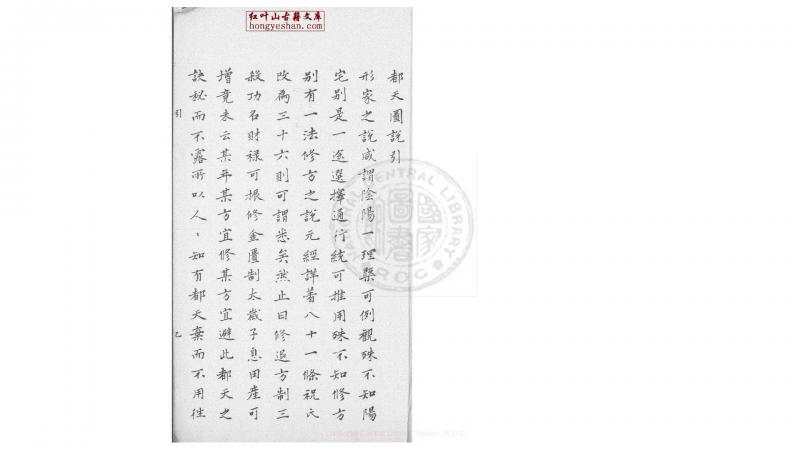 红叶山古籍文库
hongyeshan.com
都天圖說引
形家之說咸謂陰陽一理槩可例觀殊不知陽
宅别是一途選擇通行統可推用殊不知修方
别有一法修方之說元經詳著八十一條祝氏
改為三十六則可謂悉矣然止曰修退方制三
殺功名財祿可振修金匱制太歲子息田產可
增竟未云某年某方宜修某方宜避此都天之
訣秘而不露所以人〻知有都天棄而不用往
引
乙
國家圖書館
CENTRAL LIBRARY
R.O.C